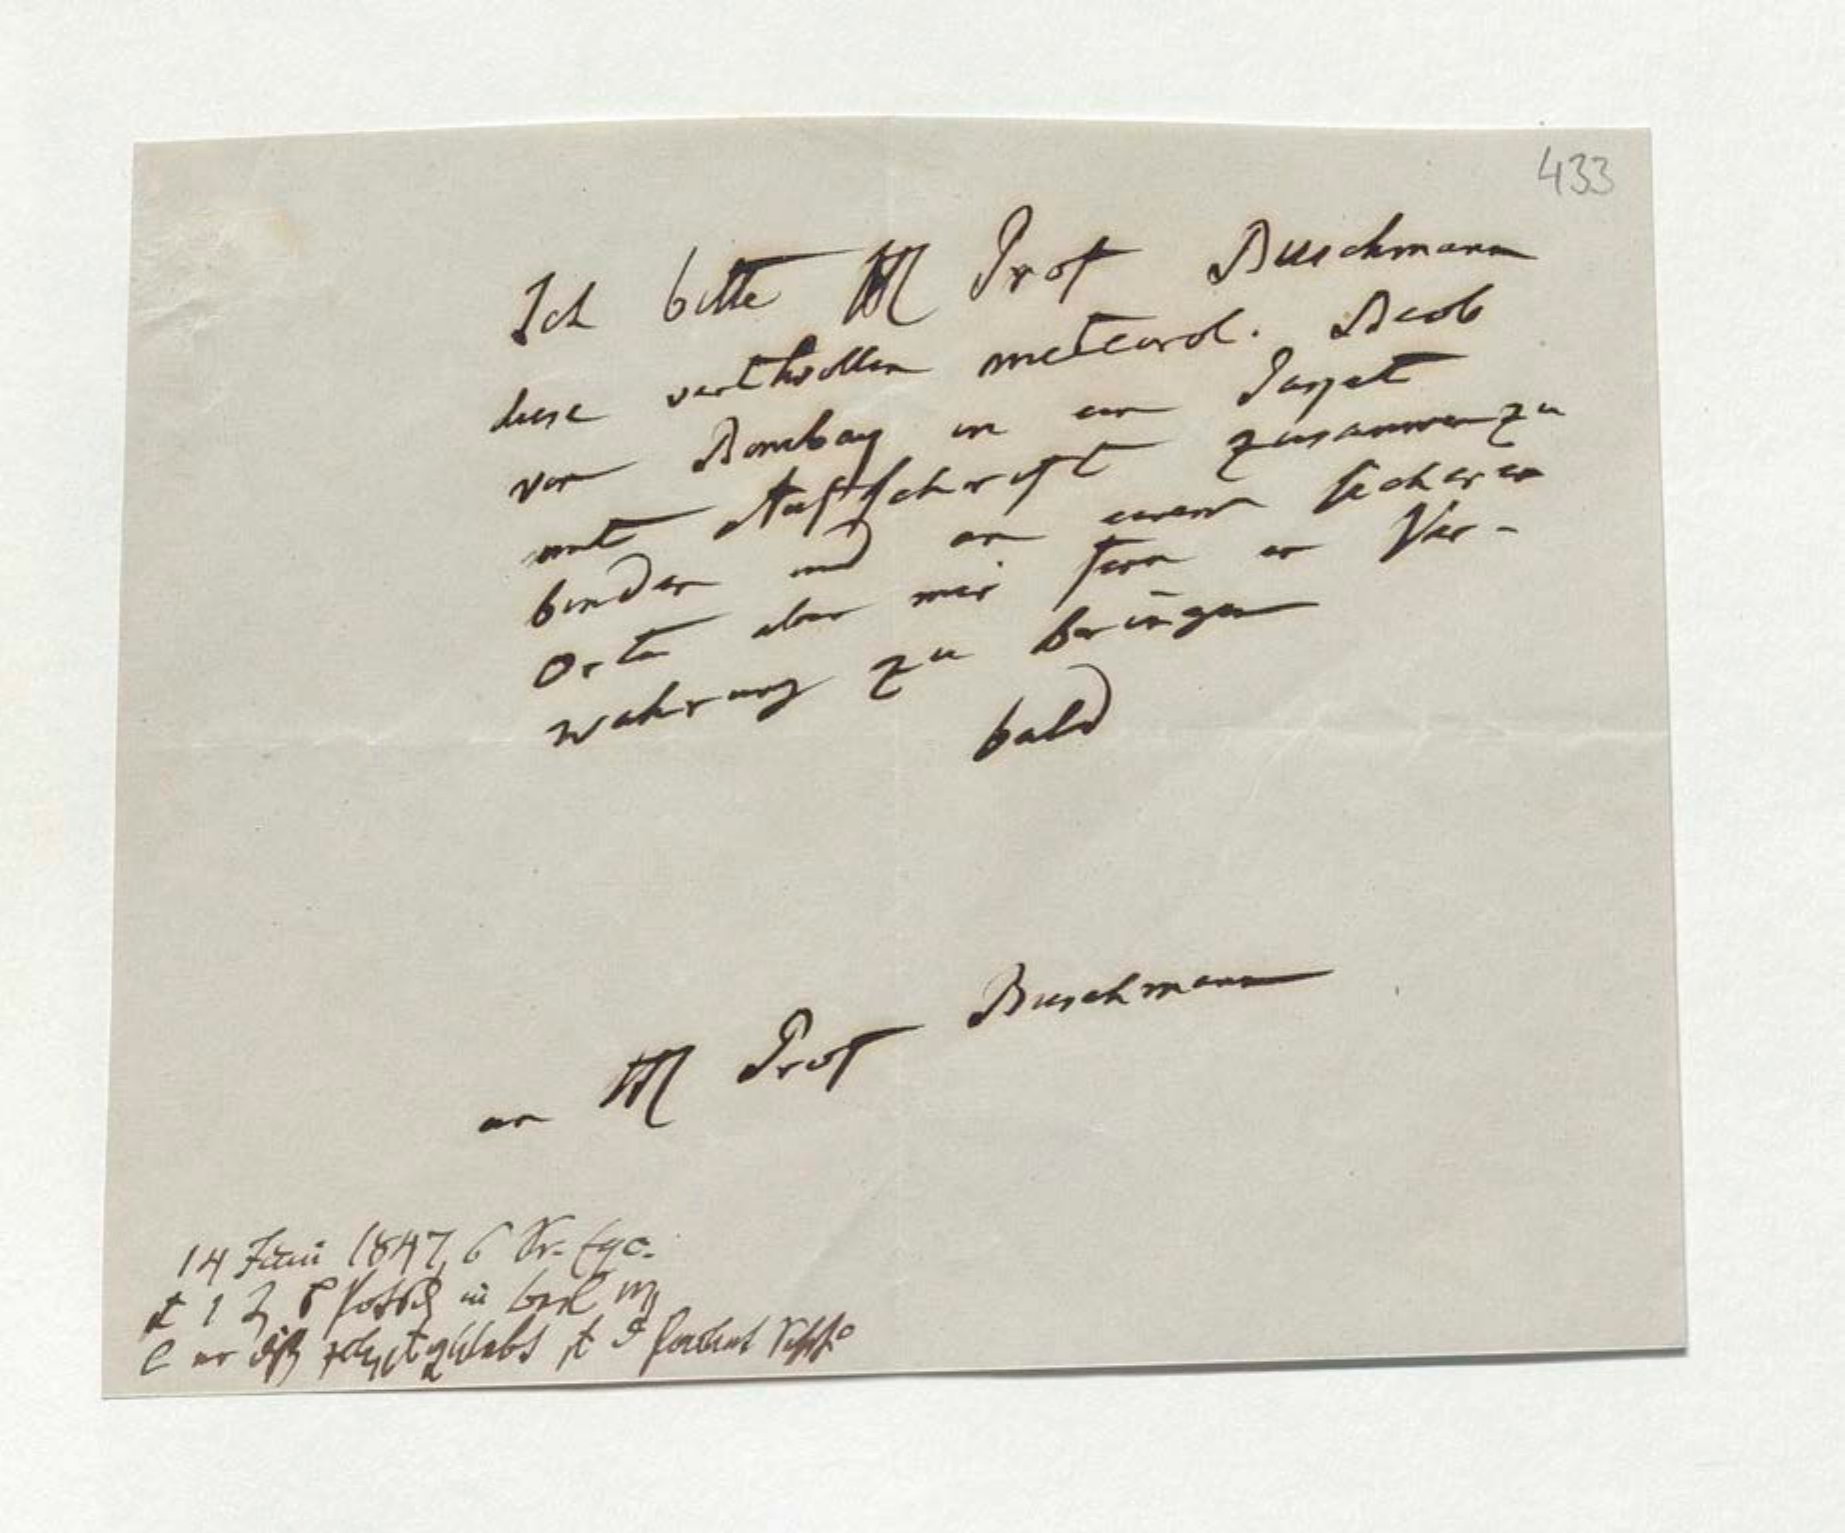 433
Ich bitte H Prof Buschmann
diese werthvollen meteorol. Beob
von Bombay in ein Paquet
mit Aufschrift zusammenzu
binden und an einem sicheren
Orte aber mir fern in Ver-
wahrung zu bringen
bald
an H Prof Buschmann
14 Juni 1847, 6
in